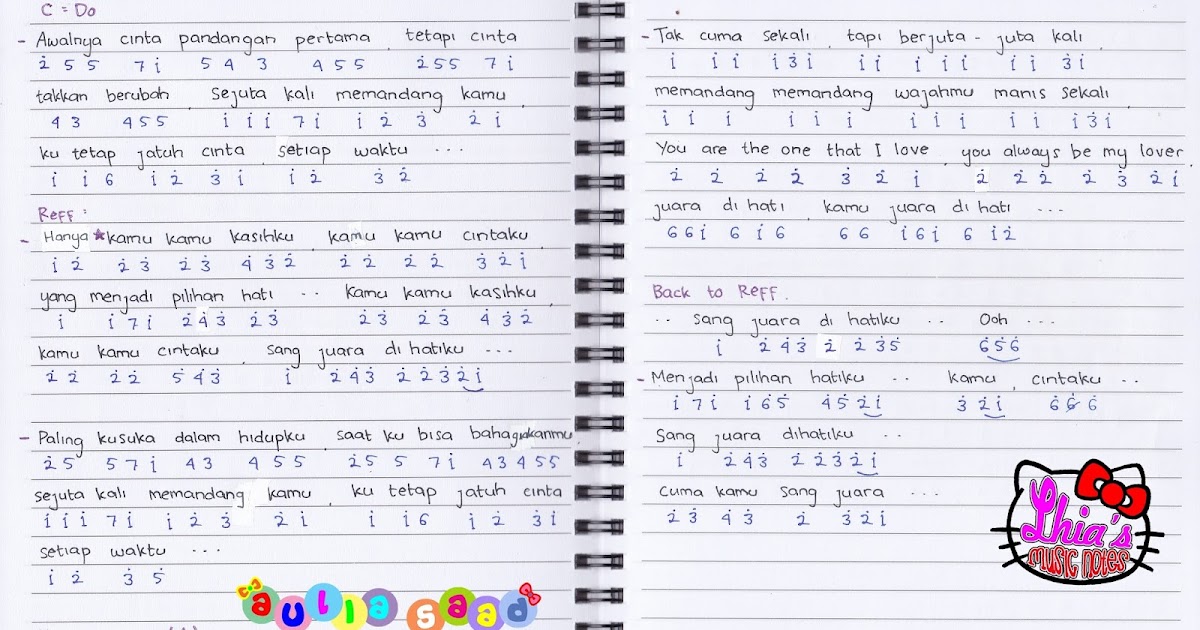 C = Do
- Awalnya cinta pandangan pertama, tetapi cinta
2̇ 5 5 7 1̇ 5 4 3 4 5 5 2̇ 5 5 7 1̇
takkan berubah, sejuta kali memandang kamu,
4 3 4 5 5 1̇ 1̇ 1̇ 7 1̇ 1̇ 2̇ 3̇ 2̇ 1̇
ku tetap jatuh cinta, setiap waktu ...
1̇ 1̇ 6 1̇ 2̇ 3̇ 1̇ 1̇ 2̇ 3̇ 2̇
Reff :
- Hanya *kamu kamu kasihku, kamu kamu cintaku,
1̇ 2̇ 2̇ 3̇ 2̇ 3̇ 4̇ 3̇ 2̇ 2̇ 2̇ 2̇ 2̇ 3̇ 2̇ 1̇
yang menjadi pilihan hati .. kamu kamu kasihku,
1̇ 1̇ 7 1̇ 2̇ 4̇ 3̇ 2̇ 3̇ 2̇ 3̇ 2̇ 3̇ 4̇ 3̇ 2̇
kamu kamu cintaku, sang juara di hatiku ...
2̇ 2̇ 2̇ 2̇ 5̇ 4̇ 3̇ 1̇ 2̇ 4̇ 3̇ 2̇ 2̇ 3̇ 2̇ 1̇
- Paling kusuka dalam hidupku, saat ku bisa bahagiakanmu
2̇ 5 5 7 1̇ 4 3 4 5 5 2̇ 5 5 7 1̇ 4 3 4 5 5
sejuta kali memandang kamu, ku tetap jatuh cinta
1̇ 1̇ 1̇ 7 1̇ 1̇ 2̇ 3̇ 2̇ 1̇ 1̇ 1̇ 6 1̇ 2̇ 3̇ 1̇
setiap waktu ...
1̇ 2̇ 3̇ 5̇
aulia saad
- Tak cuma sekali, tapi berjuta - juta kali,
1̇ 1̇ 1̇ 1̇ 3̇ 1̇ 1̇ 1̇ 1̇ 1̇ 1̇ 1̇ 1̇ 3̇ 1̇
memandang memandang wajahmu manis sekali,
1̇ 1̇ 1̇ 1̇ 1̇ 1̇ 1̇ 1̇ 1̇ 1̇ 1̇ 1̇ 3̇ 1̇
You are the one that I love, you always be my lover,
2̇ 2̇ 2̇ 2̇ 3̇ 2̇ 1̇ 2̇ 2̇ 2̇ 2̇ 3̇ 2̇ 1̇
juara di hati, kamu juara di hati ...
6 6 1̇ 6 1̇ 6 6 6 1̇ 6 1̇ 6 1̇ 2̇
Back to Reff.
.. sang juara di hatiku .. Ooh ...
1̇ 2̇ 4̇ 3̇ 2̇ 2̇ 3̇ 5̇ 6̇ 5̇ 6̇
- Menjadi pilihan hatiku .. kamu, cintaku ..
1̇ 7 1̇ 1̇ 6̇ 5̇ 4̇ 5̇ 2̇ 1̇ 3̇ 2̇ 1̇ 6̇ 6̇ 6̇
Sang juara dihatiku ..
1̇ 2̇ 4̇ 3̇ 2̇ 2̇ 3̇ 2̇ 1̇
cuma kamu sang juara ...
2̇ 3̇ 4̇ 3̇ 2̇ 3̇ 2̇ 1̇
Lhia's
MUSIC NOTES